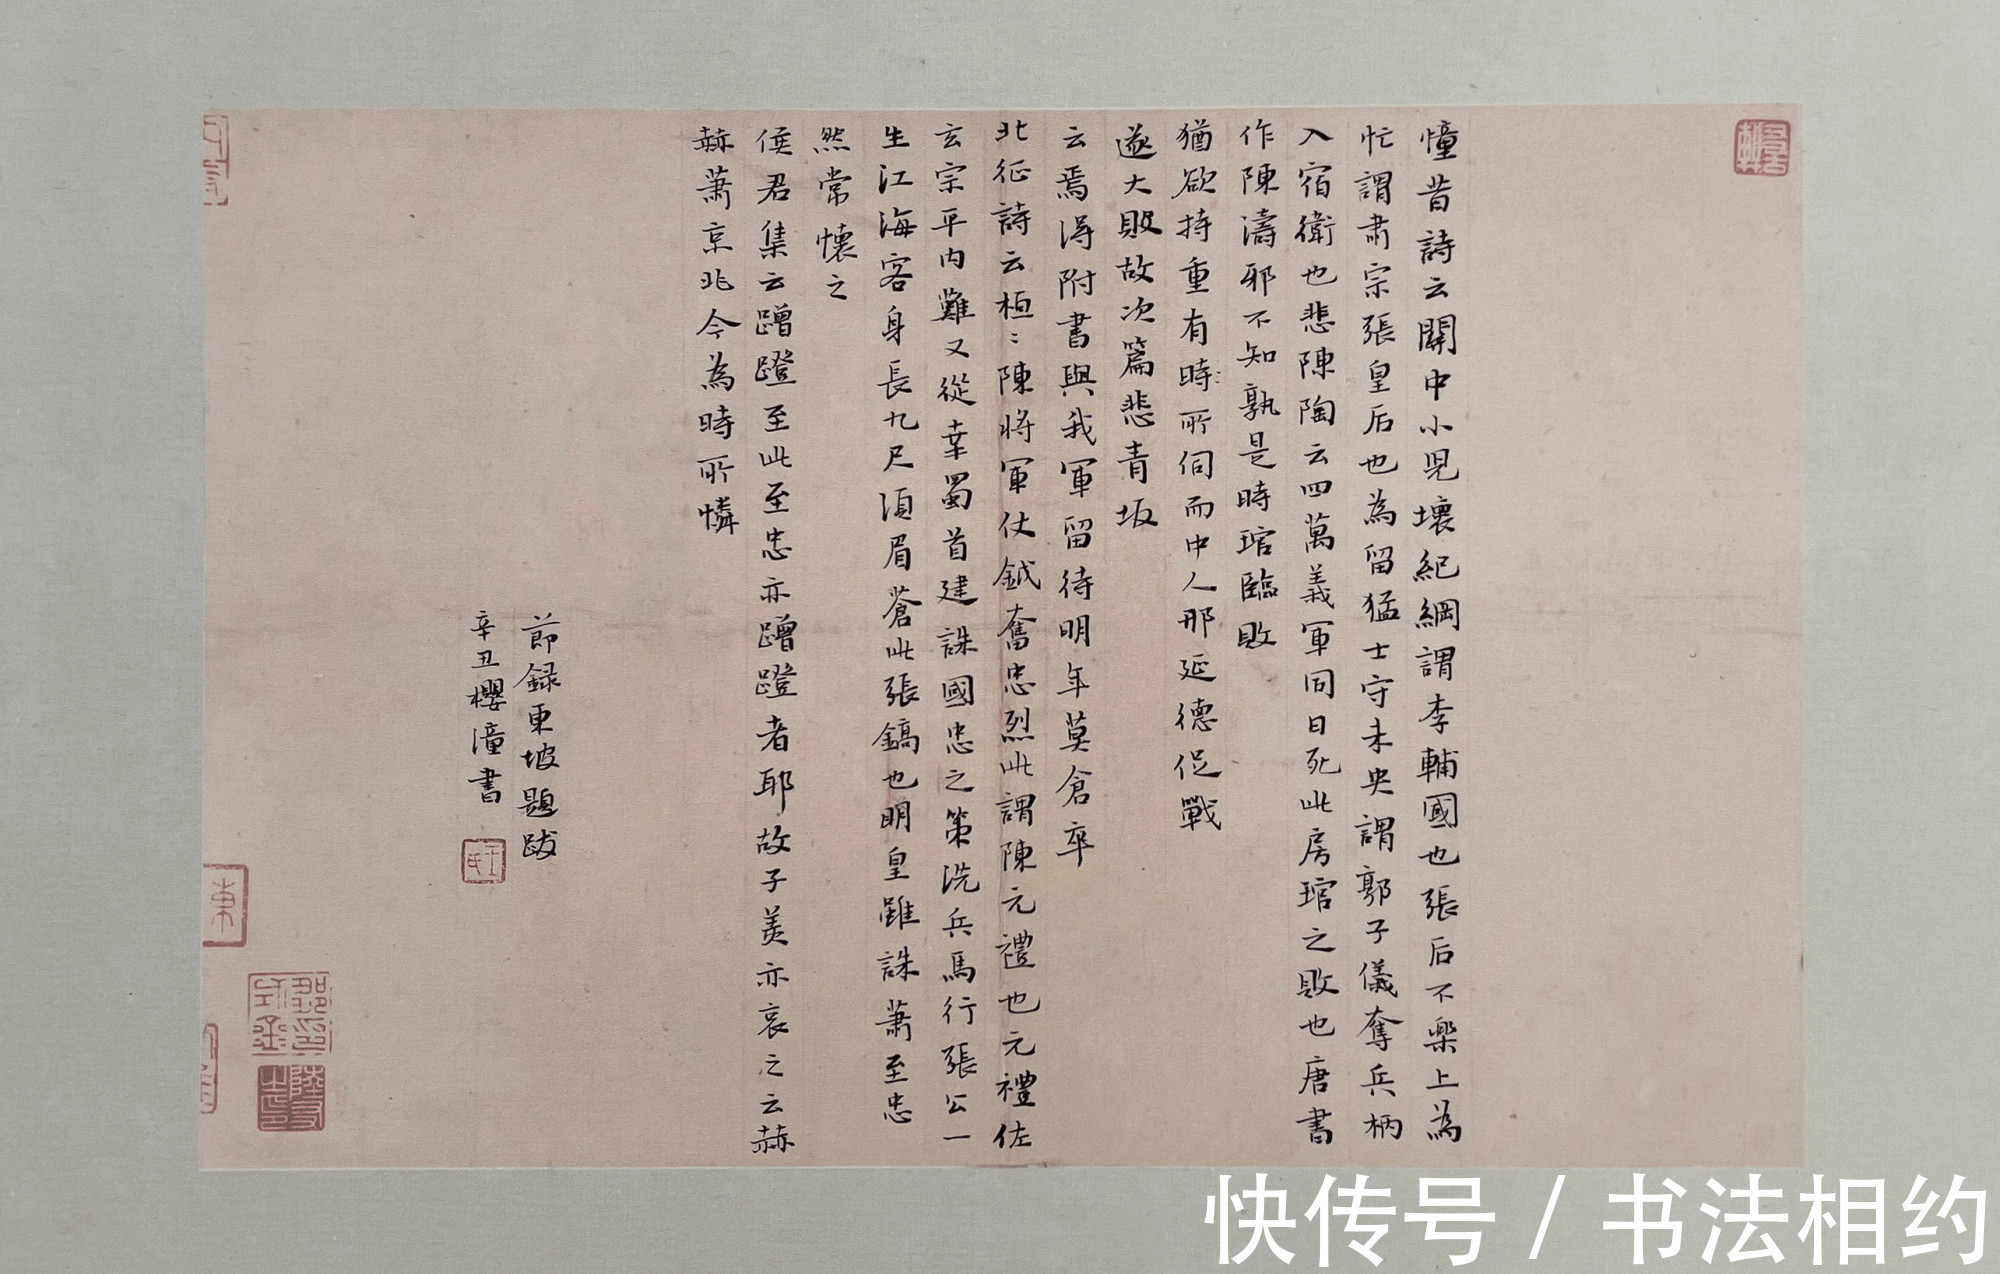 憧昔詩云關中小児壞紀綱謂李輔國也張后不樂上為
忙謂肅宗張皇后也為留猛士守未央謂郭子儀奪兵柄
入宿衛也悲陳陶云四萬義軍同日死此房琯之敗也唐書
作陳濤邪不知孰是時琯臨敗
猶欲持重有時所伺而中人邢延德促戰
遂大敗故次篇悲青坂
云焉得附書與我軍留待明年莫倉卒
北征詩云桓:陳將軍仗鉞奮忠烈此謂陳元禮也元禮佐
玄宗平内難又從幸蜀首建誅國忠之策洗兵馬行張公一
生江海客身長九尺須眉蒼此張鎬也明皇雖誅蕭至忠
然常懷之
侯君集云蹭蹬至此至忠亦蹭蹬者耶故子美亦哀之云赫
赫蕭京兆今為時所憐
節録東坡題跋
辛丑櫻潼書
王氏
東
快传号 / 书法相约